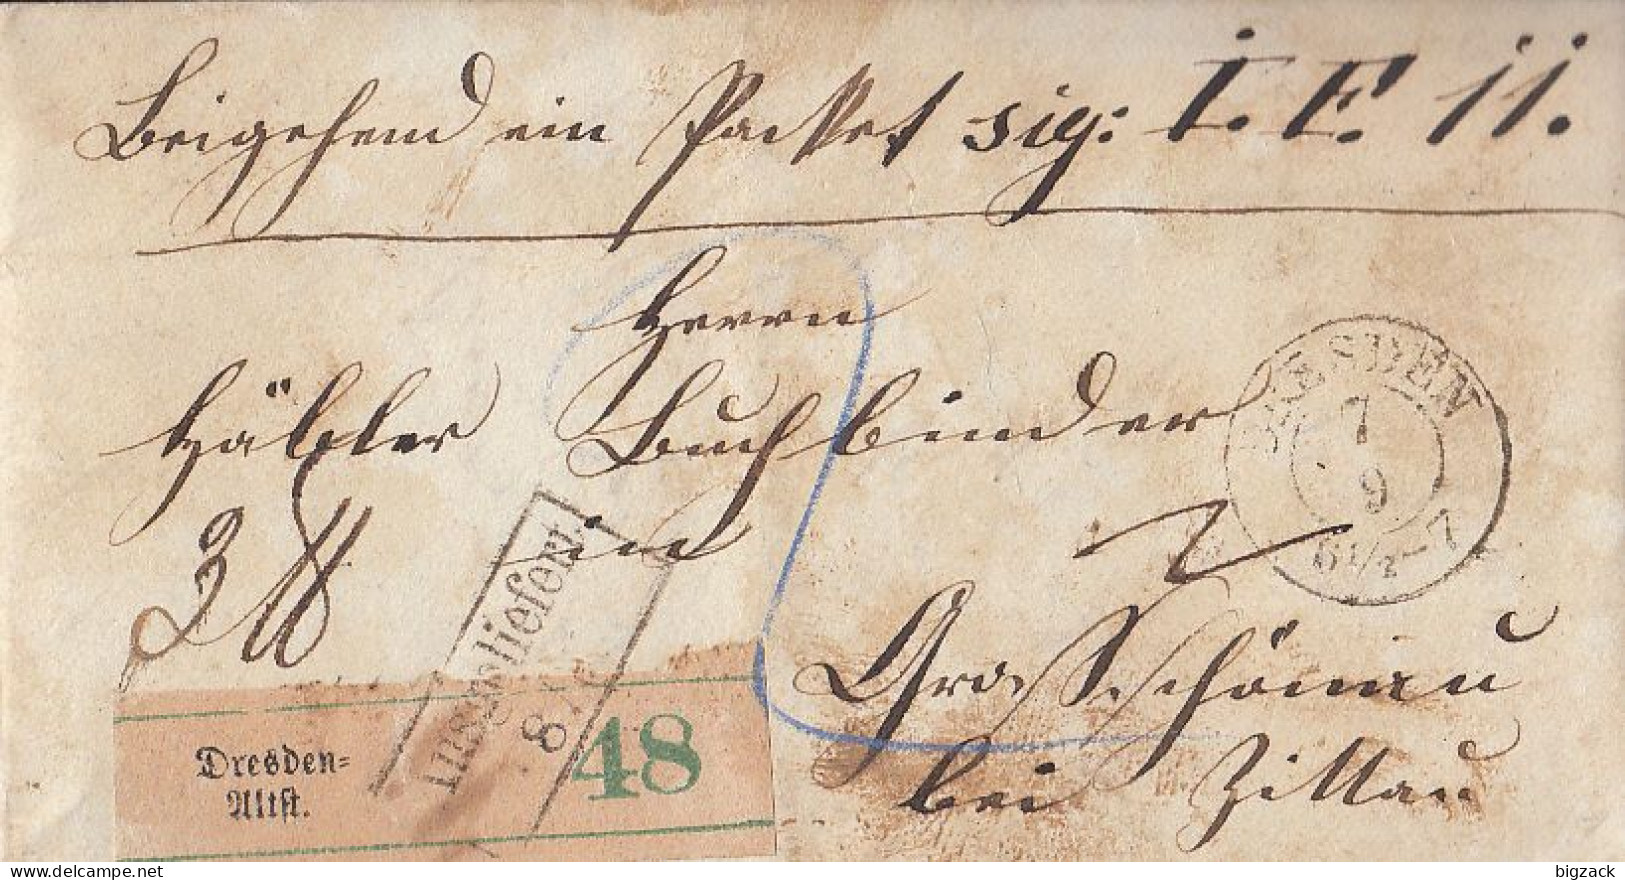 Beigehend ein Packet sig: I. F. 11.
Herrn
Häbler Buchbinder
in
Grossschönau
bei Zittau
3 ℔
DRESDEN
7
9
6½-7
Ausgeliefert
8
Dresden-
Altst.
48
2
delcampe.net
bigzack